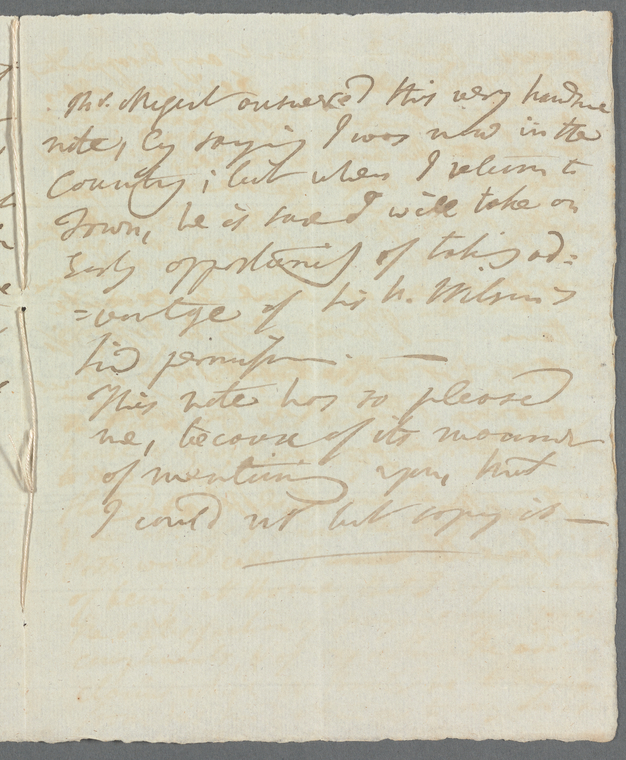 Mr. Nugent answered this very handsome
note, by saying I was now in the
Country; but when I return to
Town, he is sure I will take an
Early opportunity of taking ad=
=vantage of Sir R. Wilson's
kind permission. —
This note has so pleased
me, because of its manner
of mentioning you, that
I could not but copy it —